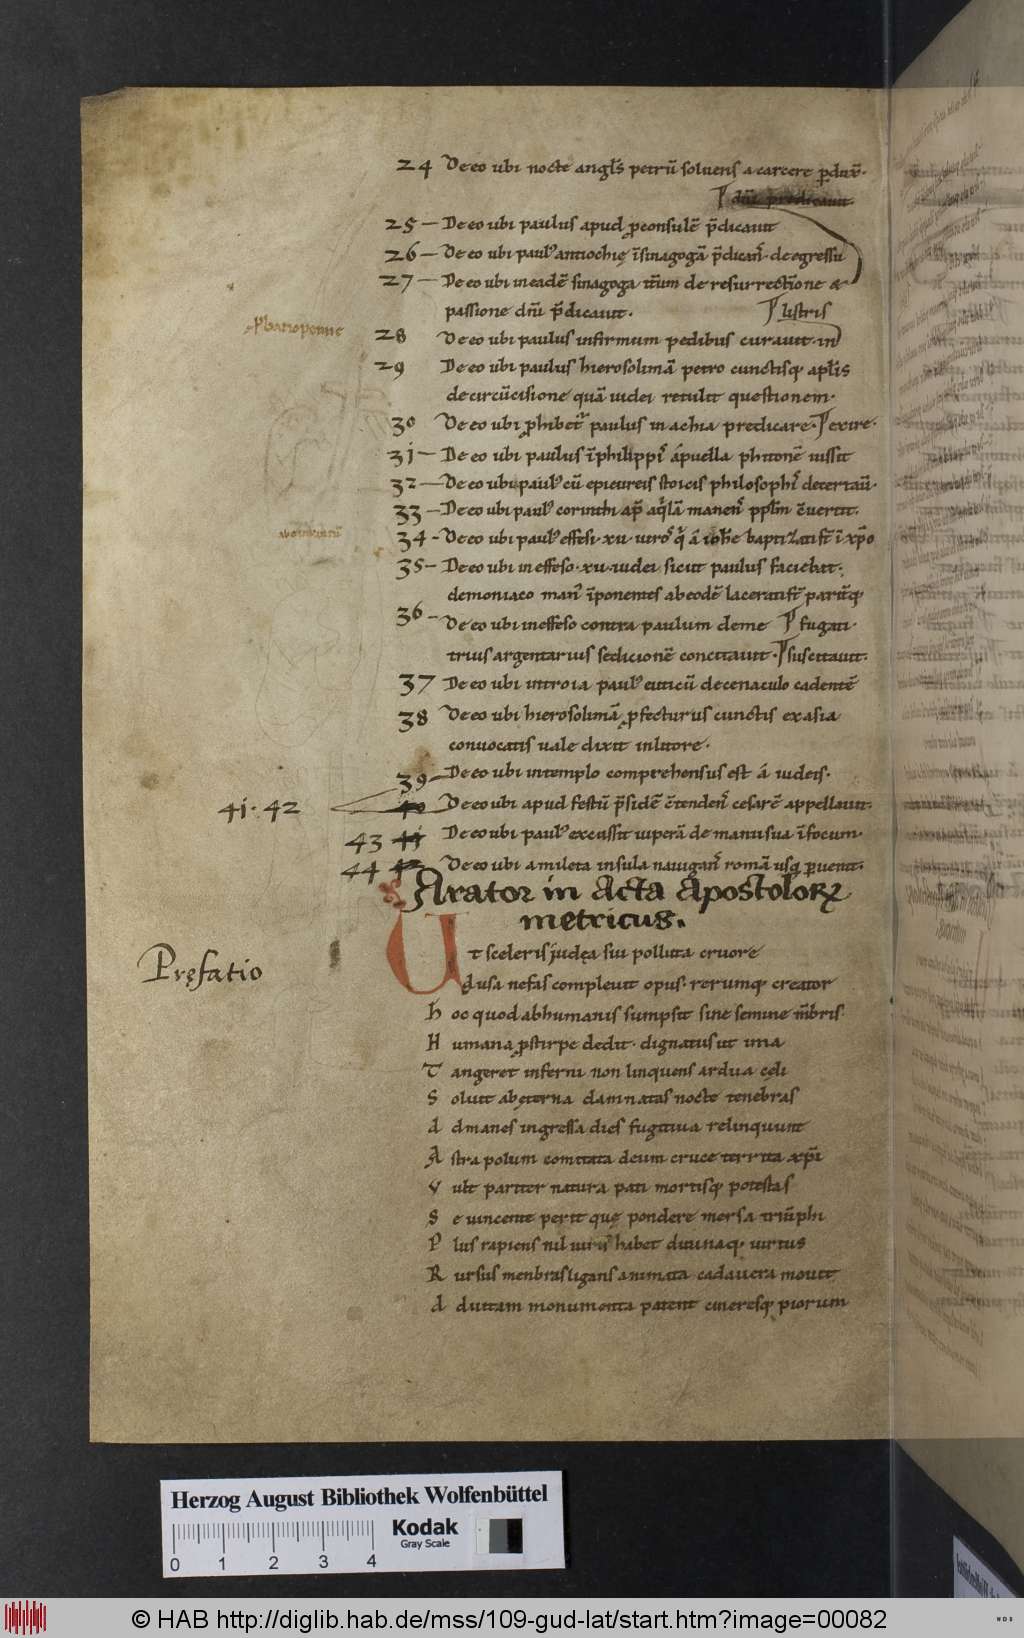 24 De eo ubi nocte angl's petrū soluens a carcere pduxͭ.
dn̄m predicauit.
25 — De eo ubi paulus apud proconsulē p̄dicauit
26 — De eo ubi paul' antiochię īsinagogā p̄dicanͭ. de egressu
27 — De eo ubi in eadē sinagoga itūm de resurrectiōne &
passione dn̄i p̄dicauit. listris
28 De eo ubi paulus infirmum pedibus curauit. in
29 De eo ubi paulus hierosolimā petro cunctisq; apl'is
de circūcisione quā iudei retulit questionem.
30 De eo ubi prohibetͬ paulus in achia predicare. exire.
31 — De eo ubi paulus īphilippis á puella phitonē iussit
32 — De eo ubi paul' cū epicureis stoicis philosophis decertauͭ.
33 — De eo ubi paul' corinthi ap̄ aq̇lā manenͭ ppl'm ēuertit.
34 - De eo ubi paul' effesi. xii. uiros q̇ á ioh'e baptizati st̄ ī xp̄o
35 — De eo ubi in effeso. xii. iudei sicut paulus faciebat.
demoniaco manͧ īponentes ab eodē lacerati st̄ paritq;
36 - De eo ubi in effeso contra paulum deme fugati.
trius argentarius sedicionē concitauit. suscitauit.
37 De eo ubi introia paul' euticū de cenaculo cadentē
38 De eo ubi hierosolimā profecturus cunctis exasia
conuocatis uale dixit inlitore.
39 — De eo ubi intemplo comprehensus est á iudeis.
41. 42 40 De eo ubi apud festū p̄sidē c̄tendenͭ cesarē appellauit.
43 41 De eo ubi paul' excussit uiperā de manu sua ī focum.
44 42 De eo ubi a mileta insula nauiganͭ romā usq; puenit.
Arator in Acta Apostoloꝝ
metricus.
Pręfatio
Ut sceleris judęa sui polluta cruore
Ausa nefas compleuit opus. rerumq; creator
Hoc quod ab humanis sumpsit sine semine mēbris
Humana pstirpe dedit. dignatus ut ima
Tangeret inferni non linquens ardua cęli
Soluit ab ęterna damnatas nocte tenebras
Admanes ingressa dies fugitiua relinquunt
Astra polum comitata deum cruce territa xp̄i
Vult pariter natura pati mortisq; potestas
Se uincente perit quę pondere mersa triūphi
Plus rapiens nil iuris habet diuinaq; uirtus
Rursus menbras ligans animata cadauera mouit
Aduitam monumenta patent cineresq; piorum
Herzog August Bibliothek Wolfenbüttel
Kodak
Gray Scale
0 1 2 3 4
© HAB http://diglib.hab.de/mss/109-gud-lat/start.htm?image=00082